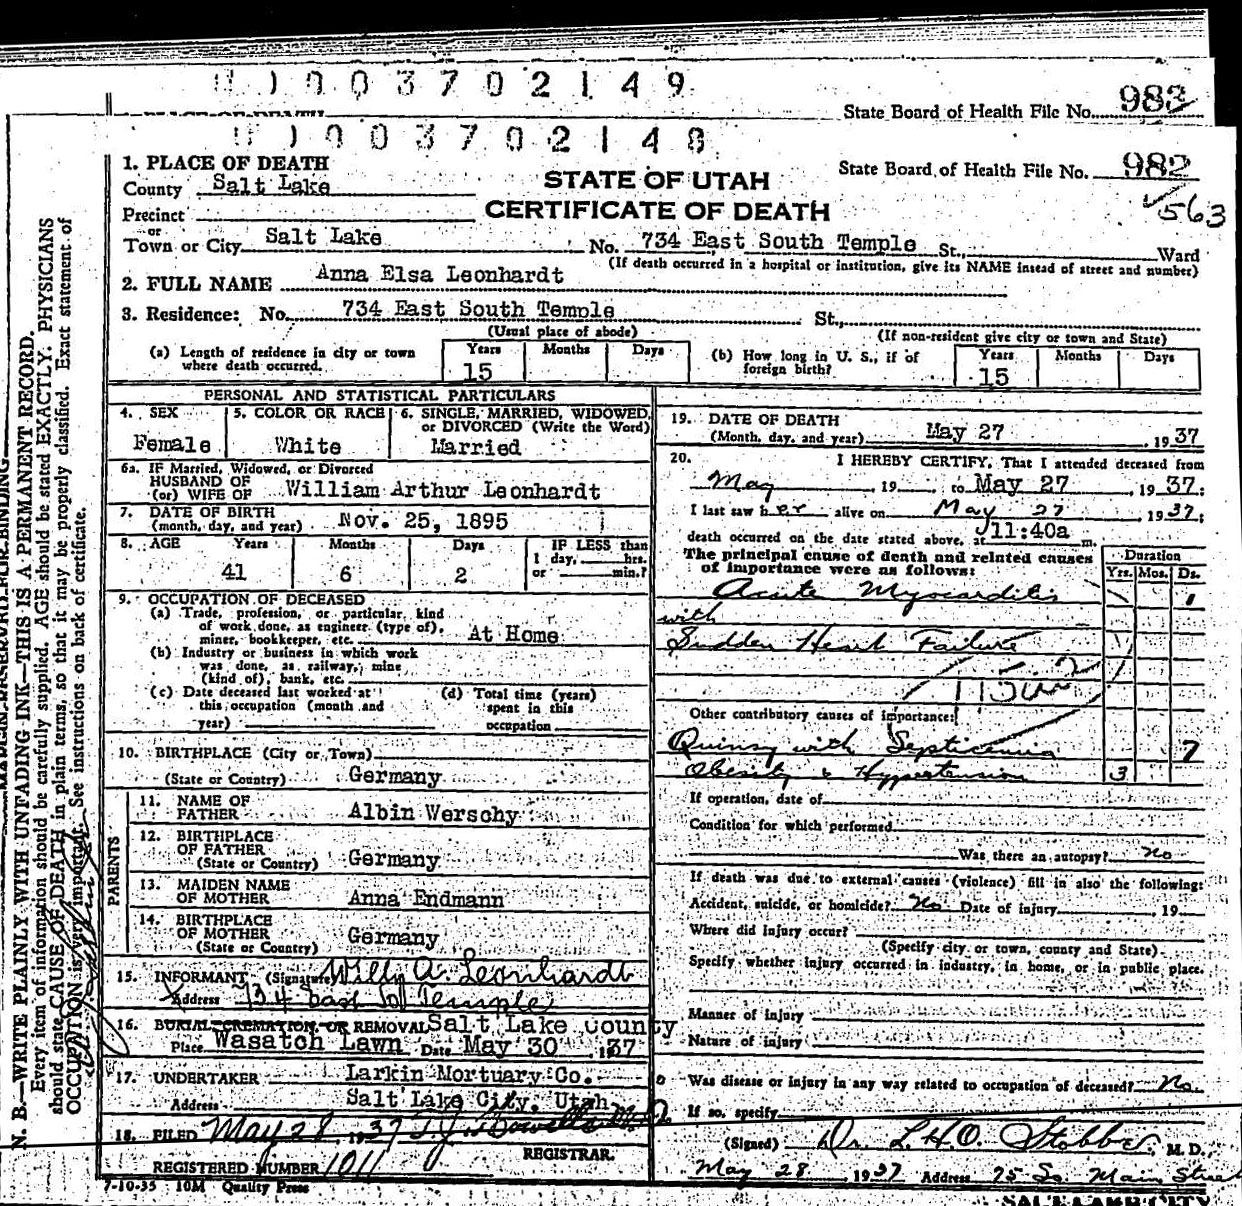 0 0 3 7 0 2 1 4 9
State Board of Health File No. 983
0 0 3 7 0 2 1 4 8
1. PLACE OF DEATH
County Salt Lake
STATE OF UTAH
State Board of Health File No. 982
Precinct
CERTIFICATE OF DEATH
563
or
Town or City Salt Lake No. 734 East South Temple St., Ward
(If death occurred in a hospital or institution, give its NAME instead of street and number)
2. FULL NAME Anna Elsa Leonhardt
3. Residence: No. 734 East South Temple St.,
(Usual place of abode) (If non-resident give city or town and State)
(a) Length of residence in city or town where death occurred. Years 15 Months Days
(b) How long in U. S., if of foreign birth? Years 15 Months Days
PERSONAL AND STATISTICAL PARTICULARS
4. SEX Female
5. COLOR OR RACE White
6. SINGLE, MARRIED, WIDOWED, or DIVORCED (Write the Word) Married
6a. IF Married, Widowed, or Divorced
HUSBAND OF
(or) WIFE OF William Arthur Leonhardt
7. DATE OF BIRTH
(month, day, and year) Nov. 25, 1895
8. AGE Years 41 Months 6 Days 2 IF LESS than 1 day, hrs. or min.?
9. OCCUPATION OF DECEASED
(a) Trade, profession, or particular, kind
of work done, as engineer (type of),
miner, bookkeeper, etc. At Home
(b) Industry or business in which work
was done, as railway, mine
(kind of), bank, etc.
(c) Date deceased last worked at this occupation (month and year)
(d) Total time (years) spent in this occupation
10. BIRTHPLACE (City or Town)
(State or Country) Germany
PARENTS
11. NAME OF
FATHER Albin Werschy
12. BIRTHPLACE
OF FATHER
(State or Country) Germany
13. MAIDEN NAME
OF MOTHER Anna Endmann
14. BIRTHPLACE
OF MOTHER
(State or Country) Germany
15. INFORMANT (Signature) Willy A. Leonhardt
Address 734 East So Temple
16. BURIAL, CREMATION, OR REMOVAL Salt Lake County
Place Wasatch Lawn Date May 30 1937
17. UNDERTAKER Larkin Mortuary Co.
Address Salt Lake City, Utah
18. FILED May 28, 1937
REGISTRAR.
REGISTERED NUMBER 1011
7-10-35 10M Quality Press
19. DATE OF DEATH
(Month, day, and year) May 27, 1937
20. I HEREBY CERTIFY, That I attended deceased from
May 19 to May 27, 1937:
I last saw her alive on May 27 1937;
death occurred on the date stated above, at 11:40a m.
The principal cause of death and related causes
of importance were as follows:
Duration
Yrs. Mos. Ds.
Acute Myocarditis 1
with
Sudden Heart Failure
Other contributory causes of importance:
Quinsy with Septicemia 7
Obesity & Hypertension 3
If operation, date of
Condition for which performed
Was there an autopsy? no
If death was due to external causes (violence) fill in also the following:
Accident, suicide, or homicide? No Date of injury 19
Where did injury occur?
(Specify city or town, county and State)
Specify whether injury occurred in industry, in home, or in public place.
Manner of injury
Nature of injury
Was disease or injury in any way related to occupation of deceased? No.
If so, specify
(Signed) Dr. L.H.O. Stobbe, M. D.
May 28 1937 Address 75 So. Main Street
SALT LAKE CITY
N. B.—WRITE PLAINLY WITH UNFADING INK—THIS IS A PERMANENT RECORD.
Every item of information should be carefully supplied. AGE should be stated EXACTLY. PHYSICIANS
should state CAUSE OF DEATH in plain terms, so that it may be properly classified. Exact statement of
OCCUPATION is very important. See instructions on back of certificate.